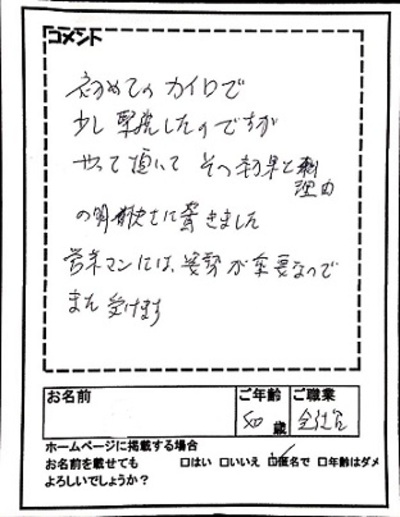 コメント
初めてのカイロで
少し緊張したのですが
やって頂いて その効果と
理由
の明快さに驚きました
営業マンには、姿勢が重要なので
また受けます
お名前
ご年齢 ご職業
50 歳 会社員
ホームページに掲載する場合
お名前を載せても
よろしいでしょうか?
□はい □いいえ ☑匿名で □年齢はダメ